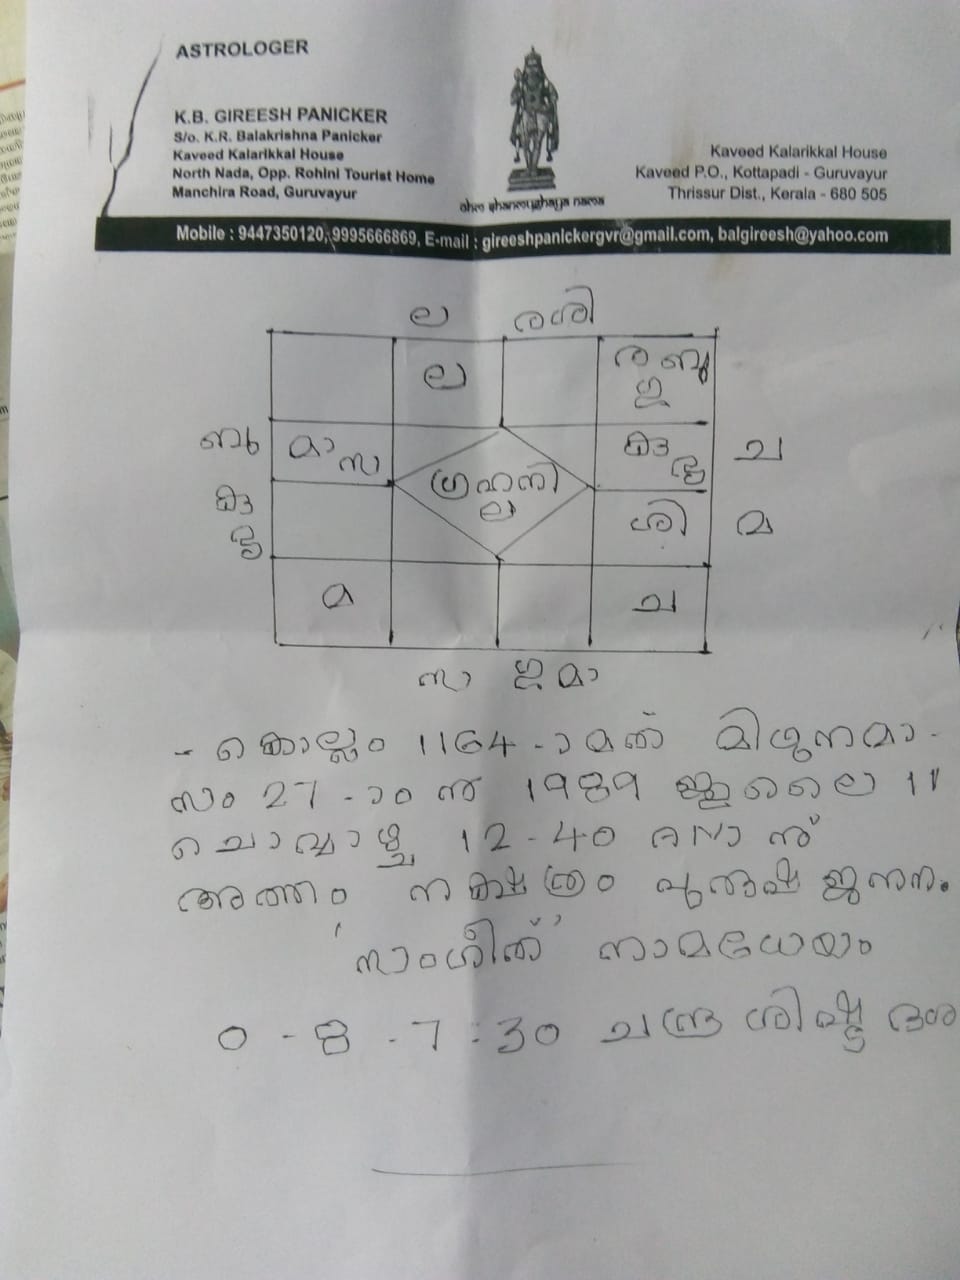 ASTROLOGER
K.B. GIREESH PANICKER
S/o. K.R. Balakrishna Panicker
Kaveed Kalarikkal House
North Nada, Opp. Rohini Tourist Home
Manchira Road, Guruvayur
ohm shanmughaya nama
Kaveed Kalarikkal House
Kaveed P.O., Kottapadi - Guruvayur
Thrissur Dist., Kerala - 680 505
Mobile : 9447350120, 9995666869, E-mail : gireeshpanickergvr@gmail.com, balgireesh@yahoo.com
ല രശി
ല ര ബു
ഗു
ബു മാ സ ച
ഗ്രഹനി
ല
ശി മ
മ ച
സ ഗു മാ
- കൊല്ലം 1164-ാമത് മിഥുനമാ-
സം 27-ാം നു 1989 ജൂലൈ 11
ചൊവ്വാഴ്ച 12-40 ന്
അത്തം നക്ഷത്രം പുരുഷ ജനനം.
'സംഗീത്' നാമധേയം
0 - 8 - 7 : 30 ചന്ദ്ര ശിഷ്ട ദശ